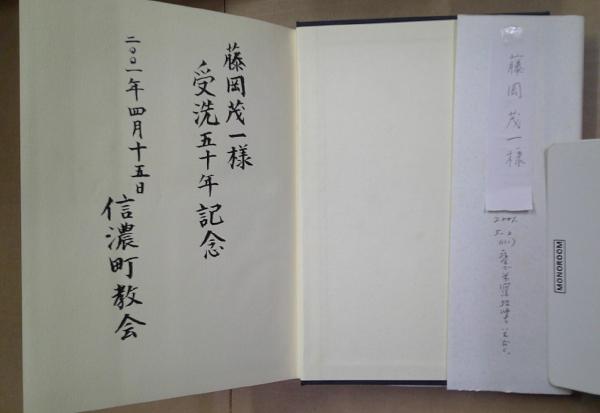 藤岡茂一様
受洗五十年記念
二〇〇一年四月十五日
信濃町教会
藤岡 茂一様
2001.
MONOROOM